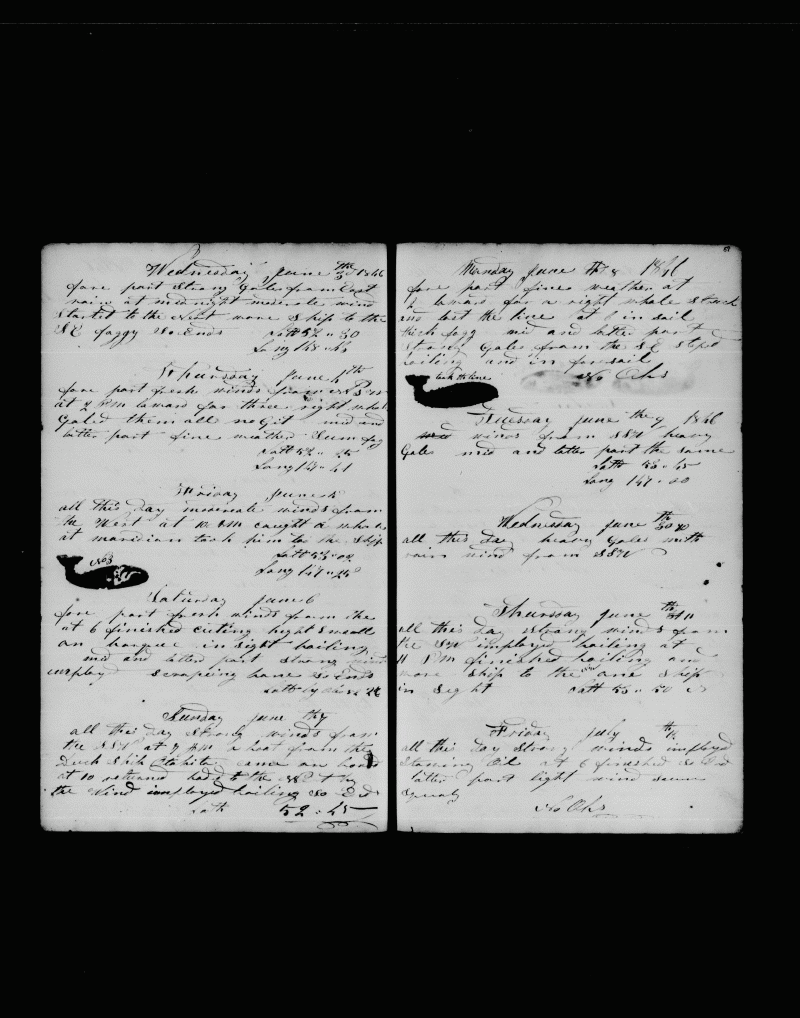 Wednesday June the 3d 1846
fore part Strong Gales from East
rain at midnight moderate wind
Started to the West wore Ship to the
SE foggy So Ends Latt 52 " 30
Long 148 "
Thursday June 4th
fore part fresh winds from
at 2 PM lowerd for three right whales
Galed them all no Git mid and
latter part fine weather Sum fog
Latt 52 " 25
Long 147 " 41
Friday June 5
all this Day moderate winds from
the West at 10 AM caught a whale
at maridian took him to the Ship
Latt 53 " 02
Long 147 " 25
No3
Saturday June 6
fore part fresh winds from the
at 6 finished cuting hight Smoll
an barque in Sight boiling
mid and latter part Strong wind
employd Scrapeing bone So Ends
Latt by Obs 52 28
Sunday June the 7
all this Day Strong winds from
the SSW at 7 PM a boat from the
Duch Ship Otahite came on board
at 10 returned hedd to the
the wind imployed boiling So Eds
Latt 52 " 45
61
Monday June the 8 1846
fore part fine weather at
2 lowerd for a right whale Struck
and lost the line at 8 in sail
thick fogg mid and latter part
Strong Gales from the SE stopd
boiling and in foresail
No Obs
took the line
Tuesday June the 9 1846
winds from SSW heavy
Gales mid and latter part the same
Latt 53 " 45
Long 147 " 00
Wednesday June the 10
all this Day heavy Gales with
rain wind from SSW
Thursday June the 11
all this Day Strong winds from
the SW imployd boiling at
11 PM finished boiling and
wore Ship to the SW one Ship
in Sight Latt 53 " 50
Friday July the
all the Day Strong winds imployd
Stowing Oil at 6 finished So End
latter part light wind Sum
Squaly
No Obs